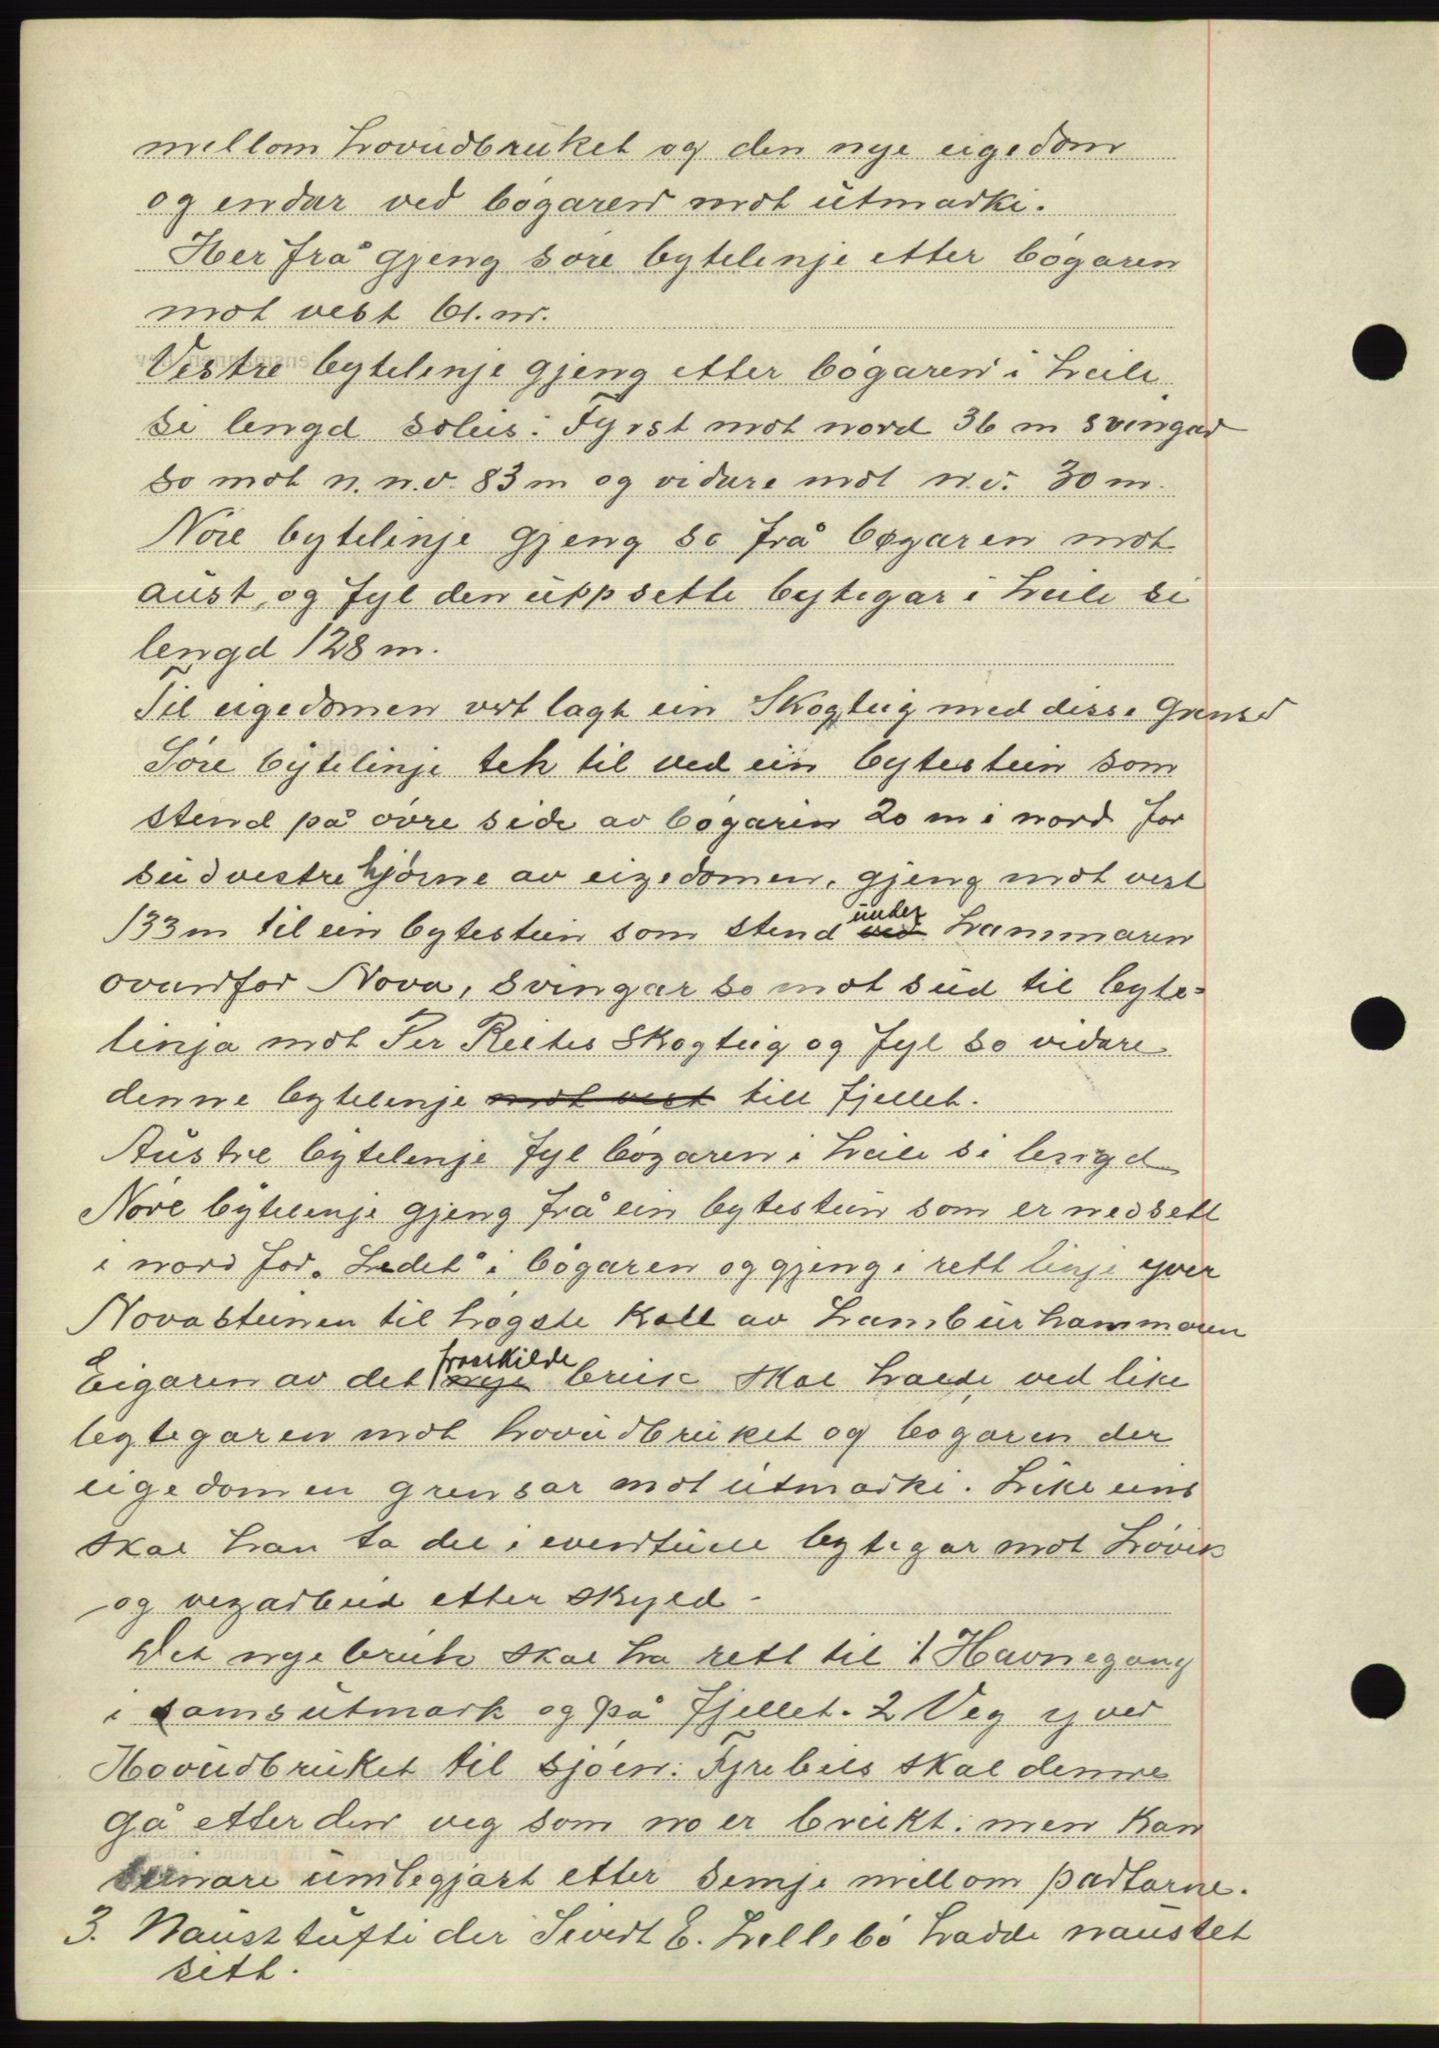 mellom hovudbruket og den nye eigedom
og endar ved bøgaren mot utmarki.
Herfrå gjeng søre bytelinje etter bøgaren
mot vest 61. m.
Vestre bytelinje gjeng etter bøgaren i heile
si lengd soleis: Fyrst mot nord 36 m svingar
so mot n.n.v. 83 m og vidare mot n.v. 30 m.
Nøre bytelinje gjeng so frå bøgaren mot
aust, og fyl den uppsette bytegar i heile si
lengd 128 m.
Til eigedomen vert lagt ein Skogteig med disse Grenser
Søre bytelinje tek til ved ein bytestein som
stend på øvre side av bøgaren 20 m i nord for
sudvestre hjørne av eigedomen, gjeng mot vest
133 m til ein bytestein som stend ved under hammaren
ovanfor Nova, svingar so mot sud til byte-
linja mot Per Reites Skogteig og fyl so vidare
denne bytelinje mot vest till fjellet.
Austre bytelinje fyl bøgaren i heile si lengd
Nøre bytelinje gjeng frå ein bytestein som er nedsett
i nord for "Ledet" i bøgaren og gjeng i rett linje yver
Novasteinen til høgste Koll av Hamburhammaren
Eigaren av det nye fraskilde bruk skal halde ved like
bytegaren mot hovudbruket og bøgaren der
eigedomen grensar mot utmarki. Like eins
skal han ta del i eventuell bytegar mot Løvik
og vegarbeid etter skyld.
Det nye bruk skal ha rett til 1 Havnegang
i samsutmark og på fjellet. 2 Veg yver
Hovudbruket til sjøen: Fyrebils skal denne
gå etter den veg som no er brukt: men kan
seinare umlegjast etter semje millom partarne.
3. Nausttufti der Sivert E. Lillebø hadde naustet
sitt.